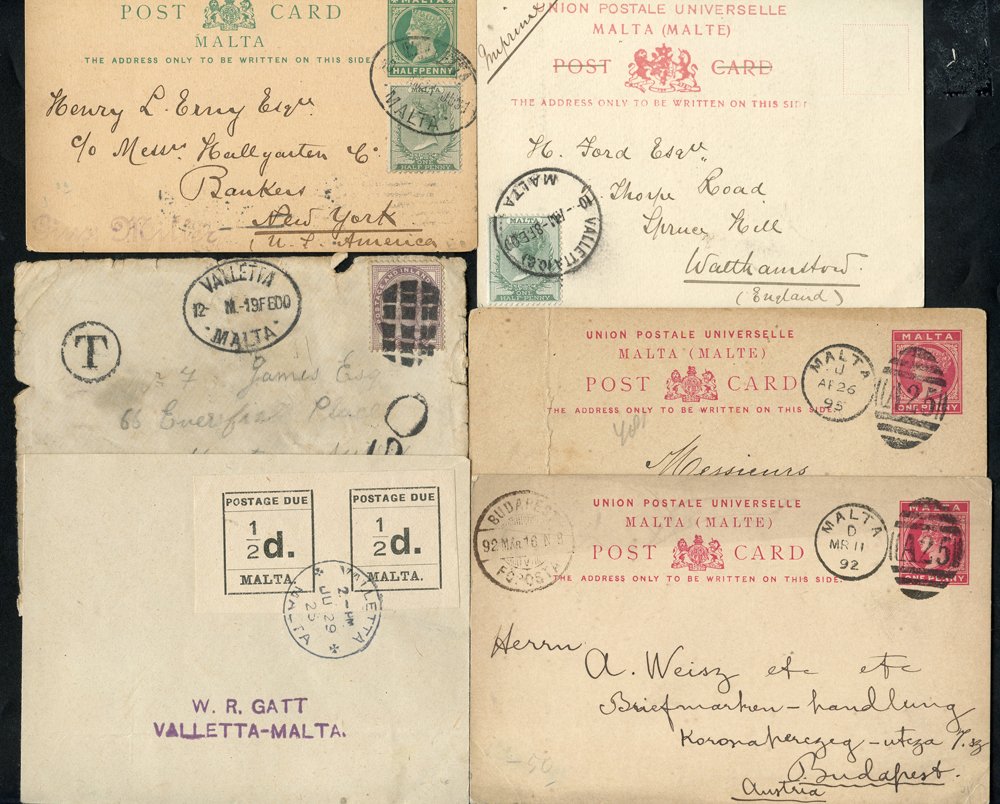 POST CARD
MALTA
THE ADDRESS ONLY TO BE WRITTEN ON THIS SIDE
MALTA
HALFPENNY
MALTA
ONE
HALF PENNY
MALTA
Henry L. Erny Esqre
c/o Messrs Hallgarten & Co
Bankers
New York
(U. S. America
UNION POSTALE UNIVERSELLE
MALTA (MALTE)
POST CARD
THE ADDRESS ONLY TO BE WRITTEN ON THIS SIDE
Imprimé
H. Ford Esqre
Thorpe Road
Spruce Hill
Walthamstow
(England)
VALLETTA
MALTA
MALTA
ONE
HALF PENNY
VALLETTA
12- M-19FE00
MALTA
T
James Esq
66
Place
UNION POSTALE UNIVERSELLE
MALTA (MALTE)
POST CARD
THE ADDRESS ONLY TO BE WRITTEN ON THIS SIDE
MALTA
AP 26
95
A25
MALTA
ONE PENNY
Messieurs
POSTAGE DUE
½d.
MALTA.
POSTAGE DUE
½d.
MALTA.
VALLETTA
2-PM
JU 29
25
MALTA
W. R. GATT
VALLETTA-MALTA.
UNION POSTALE UNIVERSELLE
MALTA (MALTE)
POST CARD
THE ADDRESS ONLY TO BE WRITTEN ON THIS SIDE.
BUDAPEST
92 MAR 16 N 8
FŐPOSTA
MALTA
D
MR 11
92
A25
MALTA
ONE PENNY
Herrn
A. Weisz etc etc
Briefmarken-handlung
Koronaherczeg-utcza 7. sz
Budapest.
Austria